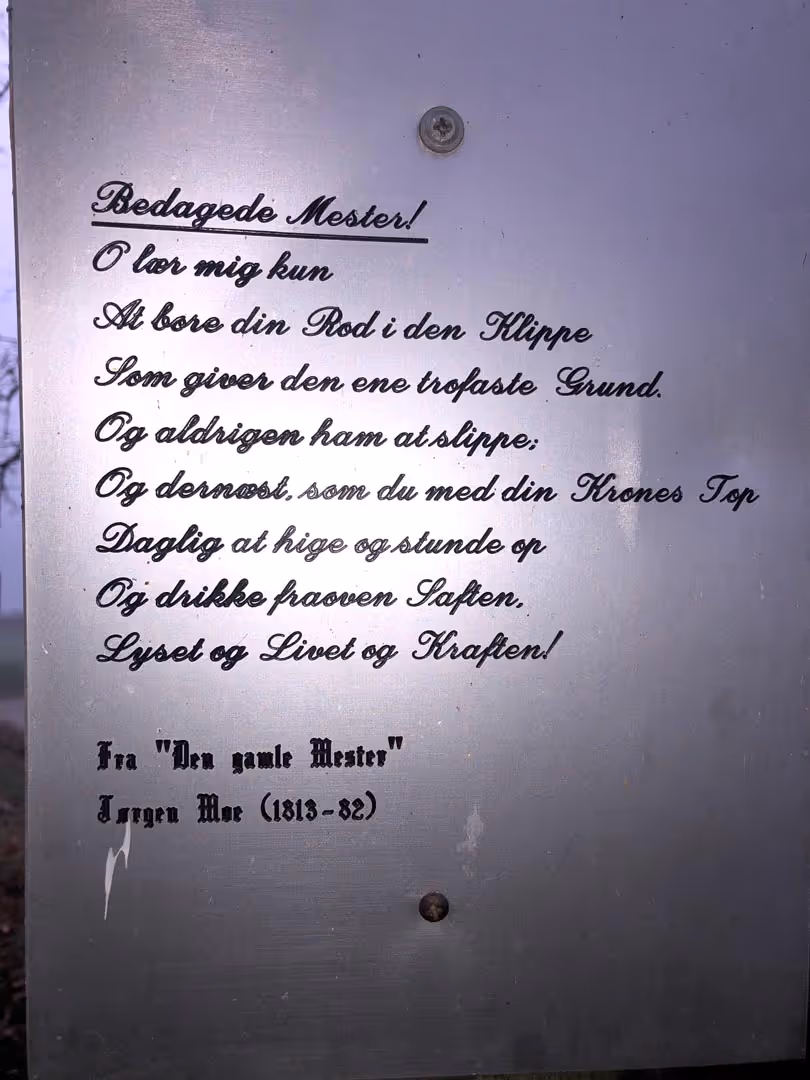 Bedagede Mester!
O lær mig kun
At bore din Rod i den Klippe
Som giver den ene trofaste Grund.
Og aldrigen ham at slippe;
Og dernæst, som du med din Krones Top
Daglig at hige og stunde op
Og drikke fraoven Saften,
Lyset og Livet og Kraften!
Fra "Den gamle Mester"
Jørgen Moe (1813-82)